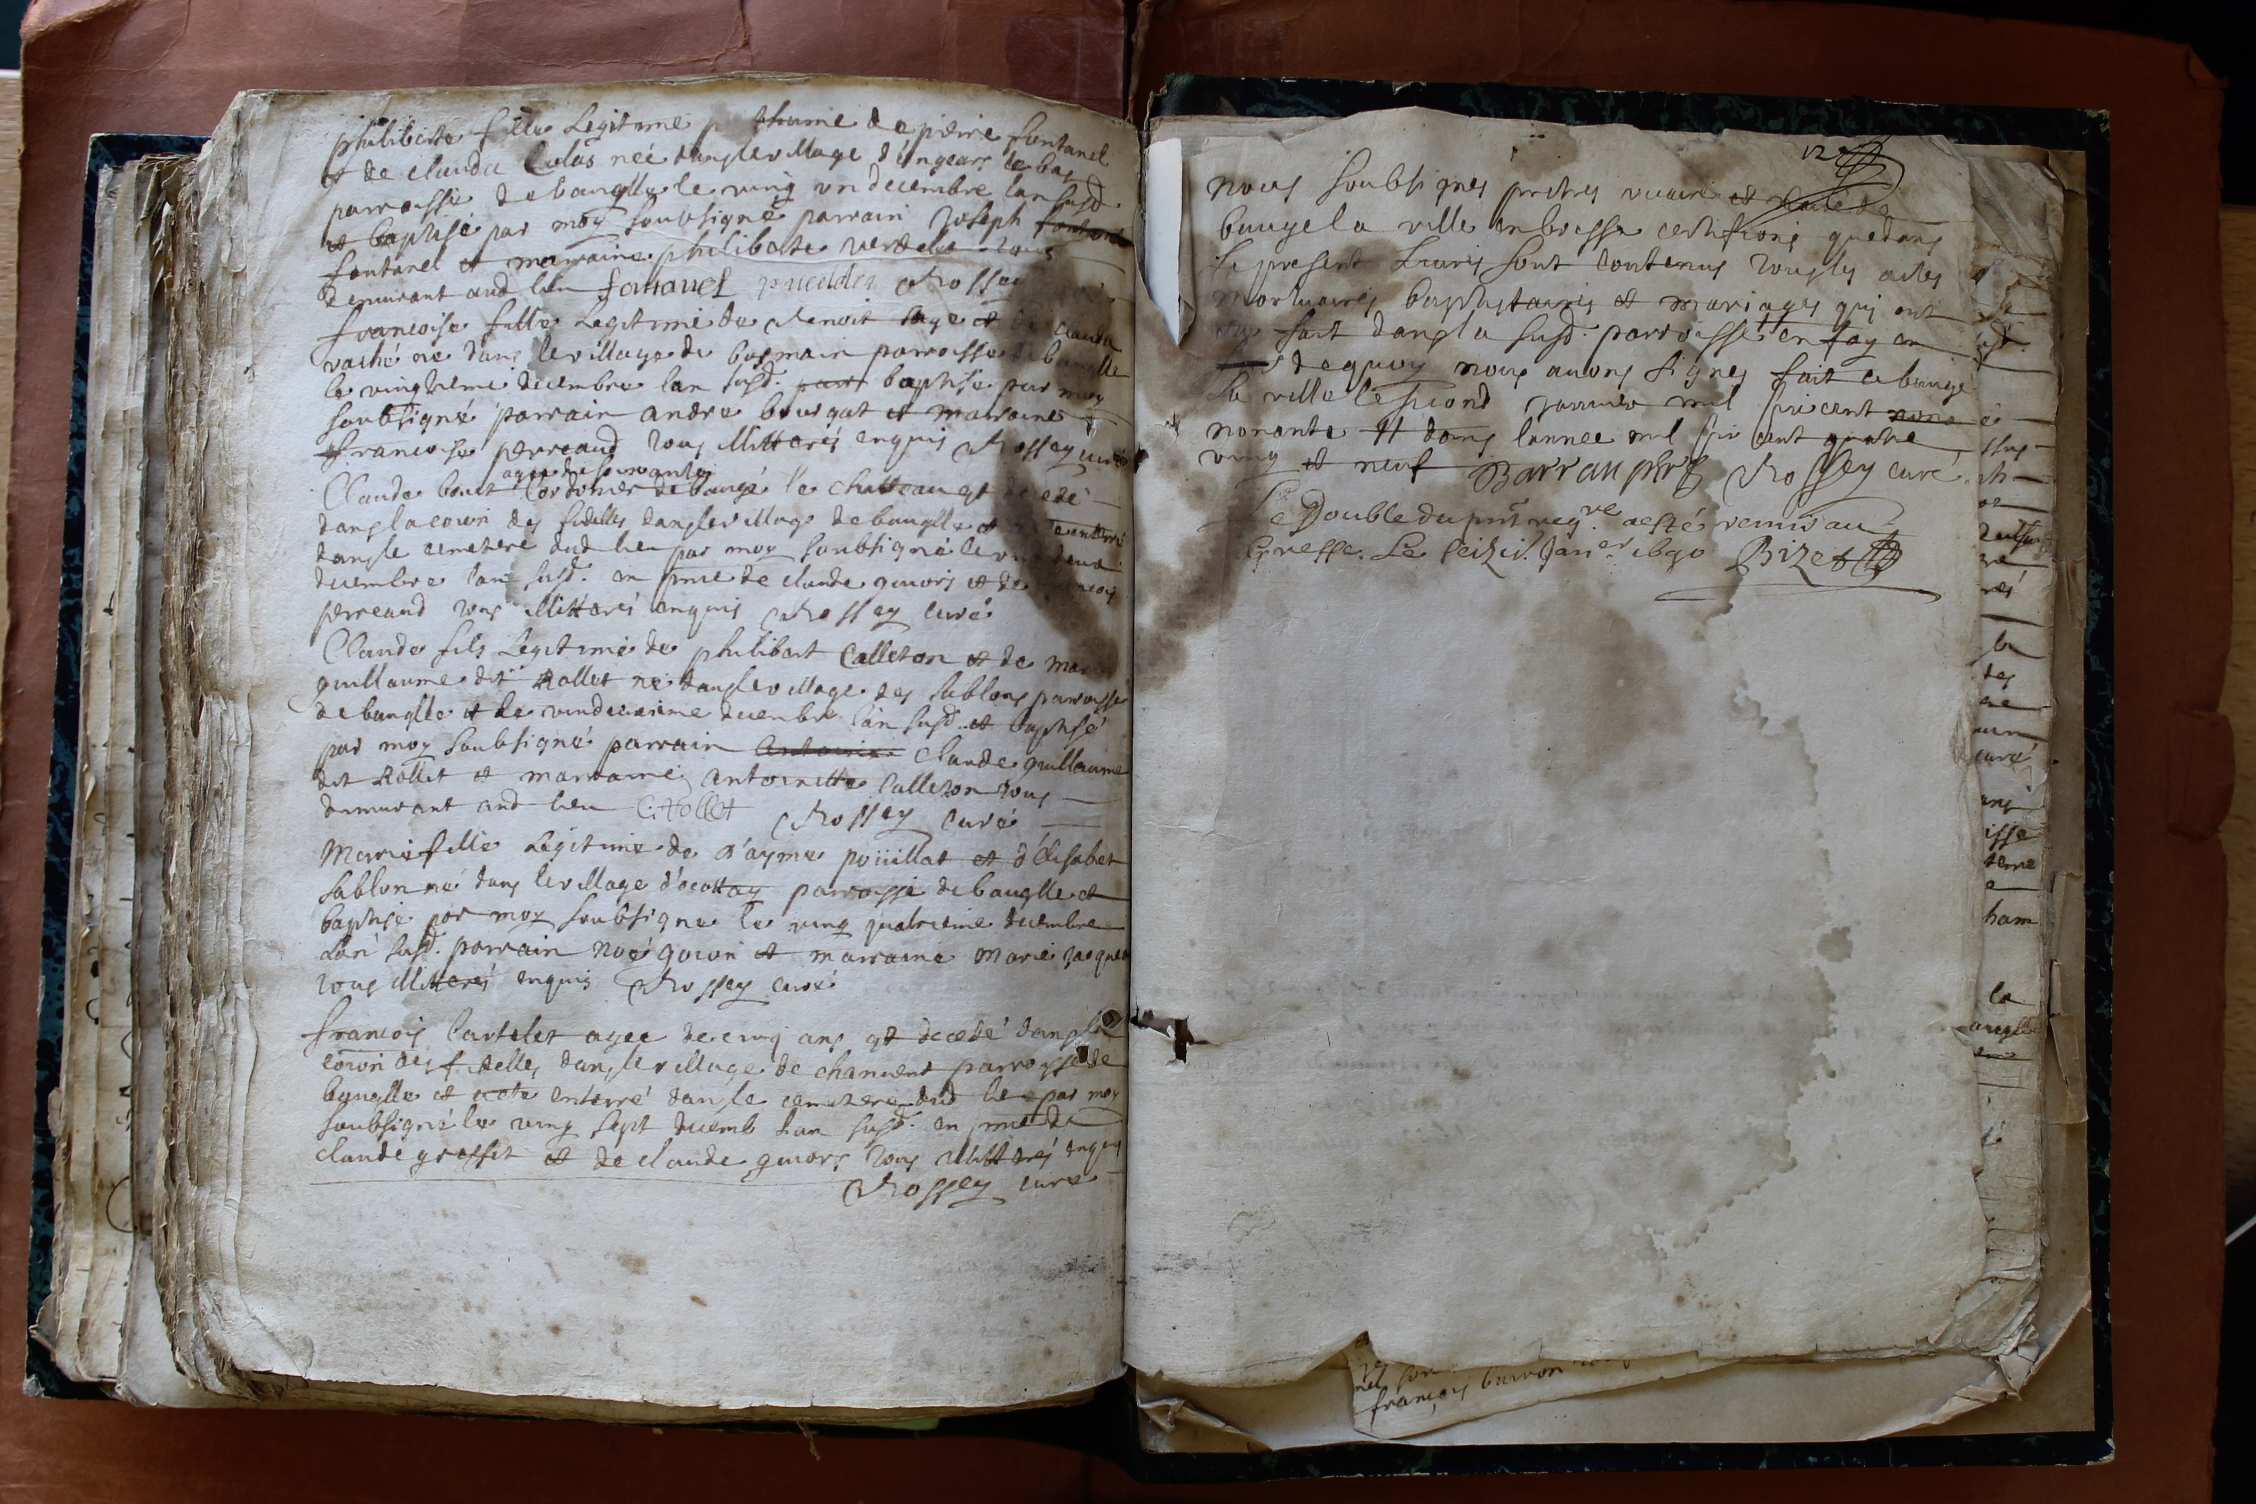 philiberte fille Legitime posthume de pierre fontanel
et de clauda Colas neé dans le village d'éngears le bas
parroisse de bauglle le ving vn decembre lan susd.
et baptisé par moy soubsigné parrain Joseph
fontanel et marraine philiberte tous
demurant aud lieu fontanel Rossey
francoise fille Legitime de Benoit et de clauda
vaché né dans le village de parroisse de bauglle
le vingtieme decembre lan susd. baptisé par moy
soubsigné parrain andre bourgat et marraine
francoise perreaud tous illitterés enquis Rossey curé
agee de soixante
Claude bouct Cordonier de baugé le chatteau est decedé
dans la coion des fidelles dans le village de bauglle et enterré
dans le cemetere dud lieu par moy soubsigné le vin deux
decembre lan susd. en pnce de claude guiors et de francois
perreaud tous illitterés enquis Rossey curé
Claude fils Legitime de philibert Calleton et de
guillaume dit Rollet né dans le village des sablons parroisse
de bauglle et le vindeuxieme decembre l'an susd. et baptisé
par moy soubsigné parrain claude guillaume
dit Rollet et marraine antoinette Calleton tous
demurant aud lieu C: Rollet Rossey curé
Marie fille Legitime de d'ayme poiiillat et d'élisabet
Sablon né dans le village d'ocottay parroisse de bauglle et
baptisé par moy soubsigne le ving quatrieme decembre
l'an susd. parrain noé goion et marraine marie Jaques
tous illitterés enquis Rossey curé
francois Cartelet agee de cinq ans est decedé dans la
coion des fidelles dans le village de chanvent parroisse de
bauglle et a eté enterré dans le cemetere dud lieu par moy
soubsigné le ving sept decemb lan susd. en pnce de
claude grosset et de claude guiors tous illitterés enquis
Rossey curé
12
nous soubsignes prestres vicaire et curé de
baugé la ville en bresse certifions que dans
le present Livres sont contenus tous les actes
mortuaires baptistaires et mariages qui ont
eté fait dans la susd. parroisse en foy
de quoy nous avons signes fait a baugé
la ville le segond Janvier mil six cent
nonante et dans l'annee mil six cent quatre
ving et neuf Barrau pbre Rossey curé
Le Double du pnt regre. a esté remis au
Greffe. Le seizie. Janer 1690 Bizet
francois buiron